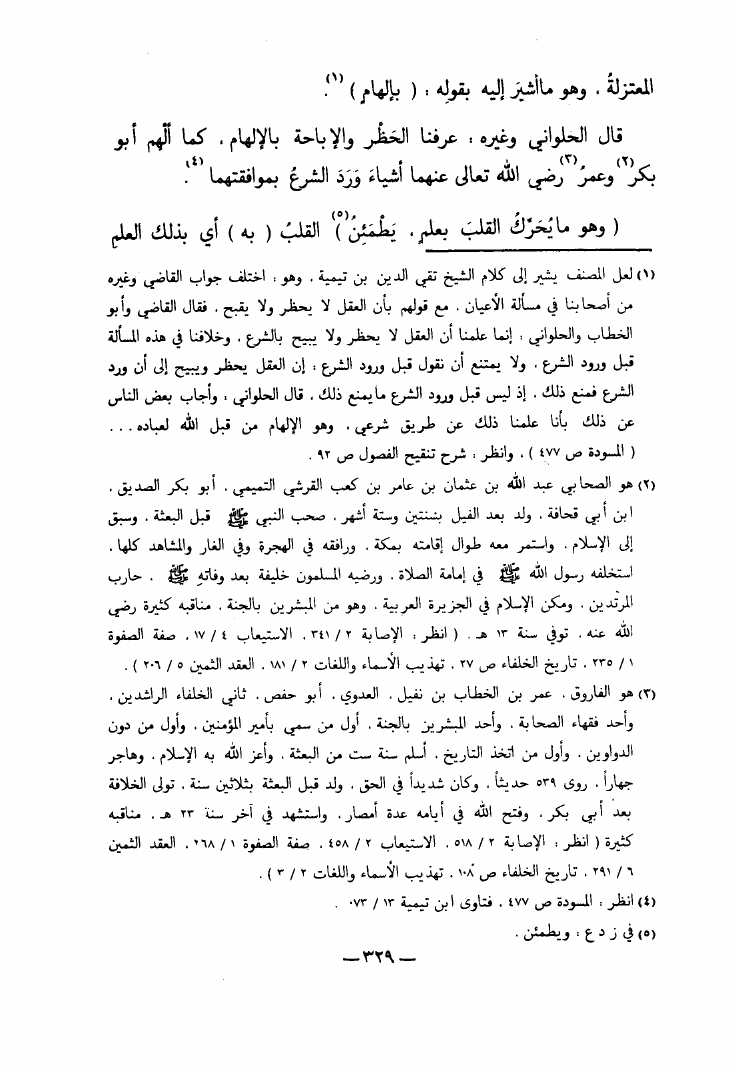 المعتزلةُ ، وهو ماأشيرَ إليه بقولِه : ( بإلهامٍ )(١).
قال الحلواني وغيره : عرفنا الحَظْر والإباحة بالإلهام ، كما أُلهم أبو
بكر(٢) وعمرُ(٣) رضي الله تعالى عنهما أشياءَ وَرَدَ الشرعُ بموافقتهما(٤).
( وهو مايُحَرِّكُ القلبَ بعلمٍ ، يَطْمَئِنُّ(٥) ) القلبُ ( به ) أي بذلك العلمِ
(١) لعل المصنف يشير إلى كلام الشيخ تقي الدين بن تيمية ، وهو : اختلف جواب القاضي وغيره
من أصحابنا في مسألة الأعيان ، مع قولهم بأن العقل لا يحظر ولا يقبح ، فقال القاضي وأبو
الخطاب والحلواني : إنما علمنا أن العقل لا يحظر ولا يبيح بالشرع ، وخلافنا في هذه المسألة
قبل ورود الشرع ، ولا يمتنع أن نقول قبل ورود الشرع : إن العقل يحظر ويبيح إلى أن ورد
الشرع فمنع ذلك ، إذ ليس قبل ورود الشرع مايمنع ذلك ، قال الحلواني : وأجاب بعض الناس
عن ذلك بأنا علمنا ذلك عن طريق شرعي ، وهو الإلهام من قبل الله لعباده ...
( المسودة ص ٤٧٧ ) ، وانظر : شرح تنقيح الفصول ص ٩٢ .
(٢) هو الصحابي عبد الله بن عثمان بن عامر بن كعب القرشي التميمي ، أبو بكر الصديق ،
ابن أبي قحافة ، ولد بعد الفيل بسنتين وستة أشهر ، صحب النبي ﷺ قبل البعثة ، وسبق
إلى الإسلام ، واستمر معه طوال إقامته بمكة ، ورافقه في الهجرة وفي الغار والمشاهد كلها ،
استخلفه رسول الله ﷺ في إمامة الصلاة ، ورضيه المسلمون خليفة بعد وفاته ﷺ ، حارب
المرتدين ، ومكن الإسلام في الجزيرة العربية ، وهو من المبشرين بالجنة ، مناقبه كثيرة رضي
الله عنه ، توفي سنة ١٣ هـ . ( انظر : الإصابة ٢ / ٣٤١ ، الاستيعاب ٤ / ١٧ ، صفة الصفوة
١ / ٢٣٥ ، تاريخ الخلفاء ص ٢٧ ، تهذيب الأسماء واللغات ٢ / ١٨١ ، العقد الثمين ٥ / ٢٠٦ ) .
(٣) هو الفاروق ، عمر بن الخطاب بن نفيل ، العدوي ، أبو حفص ، ثاني الخلفاء الراشدين ،
وأحد فقهاء الصحابة ، وأحد المبشرين بالجنة ، أول من سمي بأمير المؤمنين ، وأول من دون
الدواوين ، وأول من اتخذ التاريخ ، أسلم سنة ست من البعثة ، وأعز الله به الإسلام ، وهاجر
جهاراً ، روى ٥٣٩ حديثاً ، وكان شديداً في الحق ، ولد قبل البعثة بثلاثين سنة ، تولى الخلافة
بعد أبي بكر ، وفتح الله في أيامه عدة أمصار ، واستشهد في آخر سنة ٢٣ هـ ، مناقبه
كثيرة ( انظر : الإصابة ٢ / ٥١٨ ، الاستيعاب ٢ / ٤٥٨ ، صفة الصفوة ١ / ٢٦٨ ، العقد الثمين
٦ / ٢٩١ ، تاريخ الخلفاء ص ١٠٨ ، تهذيب الأسماء واللغات ٢ / ٣ ) .
(٤) انظر : المسودة ص ٤٧٧ ، فتاوى ابن تيمية ١٣ / ٠٧٣ .
(٥) في ز د ع : ويطمئن .
— ٣٢٩ —